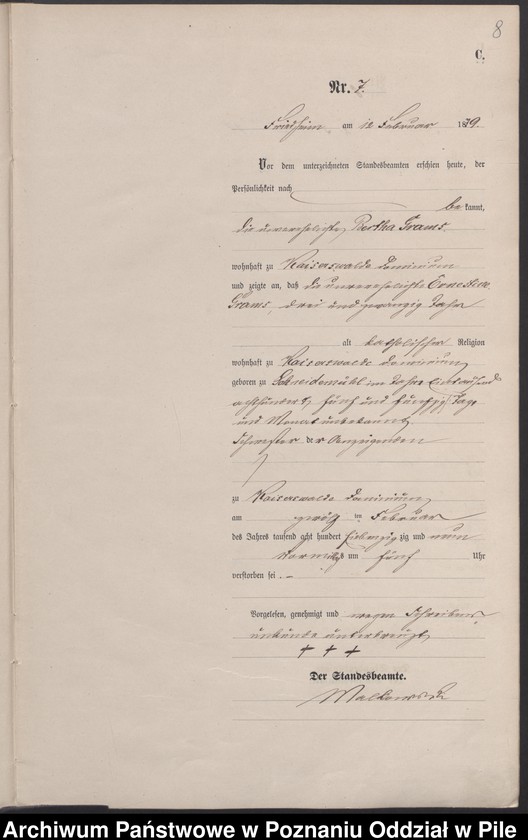 8
C.
Nr. 7.
Friedheim am 12 Februar 1879.
Vor dem unterzeichneten Standesbeamten erschien heute, der
Persönlichkeit nach
bekannt,
die unverehelichte Bertha Grams
wohnhaft zu Kaiserswalde Dominium
und zeigte an, daß die unverehelichte Ernestine
Grams, drei und zwanzig Jahr
alt katholischer Religion
wohnhaft zu Kaiserswalde Dominium
geboren zu Schneidemühl im Jahre Eintausend
achthundert fünf und fünfzig Tage
und Monat unbekannt
Schwester der Anzeigenden
zu Kaiserswalde Dominium
am ten Februar
des Jahres tausend acht hundert siebenzig zig und neun
Vormittags um fünf Uhr
verstorben sei.
Vorgelesen, genehmigt und wegen Schreibens
unkunde unterkreuzt
+ + +
Der Standesbeamte.
Archiwum Państwowe w Poznaniu Oddział w Pile